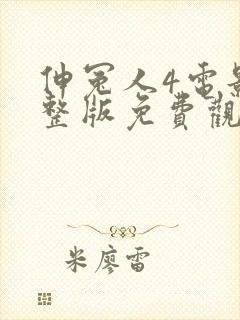 伸冤人4電影
整版免費觀
米廖雷